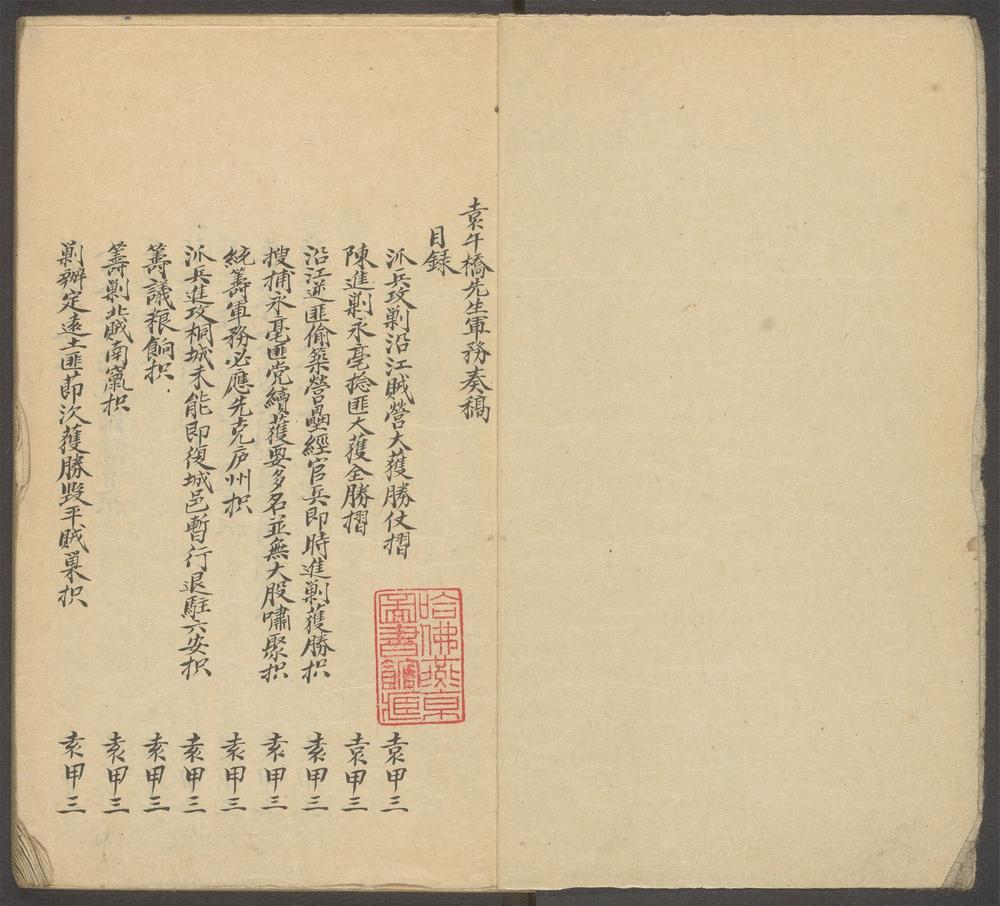 袁午橋先生軍務奏稿
目錄
派兵攻剿沿江賊營大獲勝仗摺 袁甲三
陳進剿永亳捻匪大獲全勝摺 袁甲三
沿江逆匪偷築營壘經官兵即時進剿獲勝択 袁甲三
搜捕永亳匪党續獲要多名並無大股嘯聚択 袁甲三
統籌軍務必應先克庐州択 袁甲三
派兵進攻桐城未能即復城邑暫行退駐六安択 袁甲三
籌議粮餉択 袁甲三
籌剿北賊南竄択 袁甲三
剿辦定遠土匪莭次獲勝毀平賊巢択 袁甲三
哈佛燕京
圖書館藏